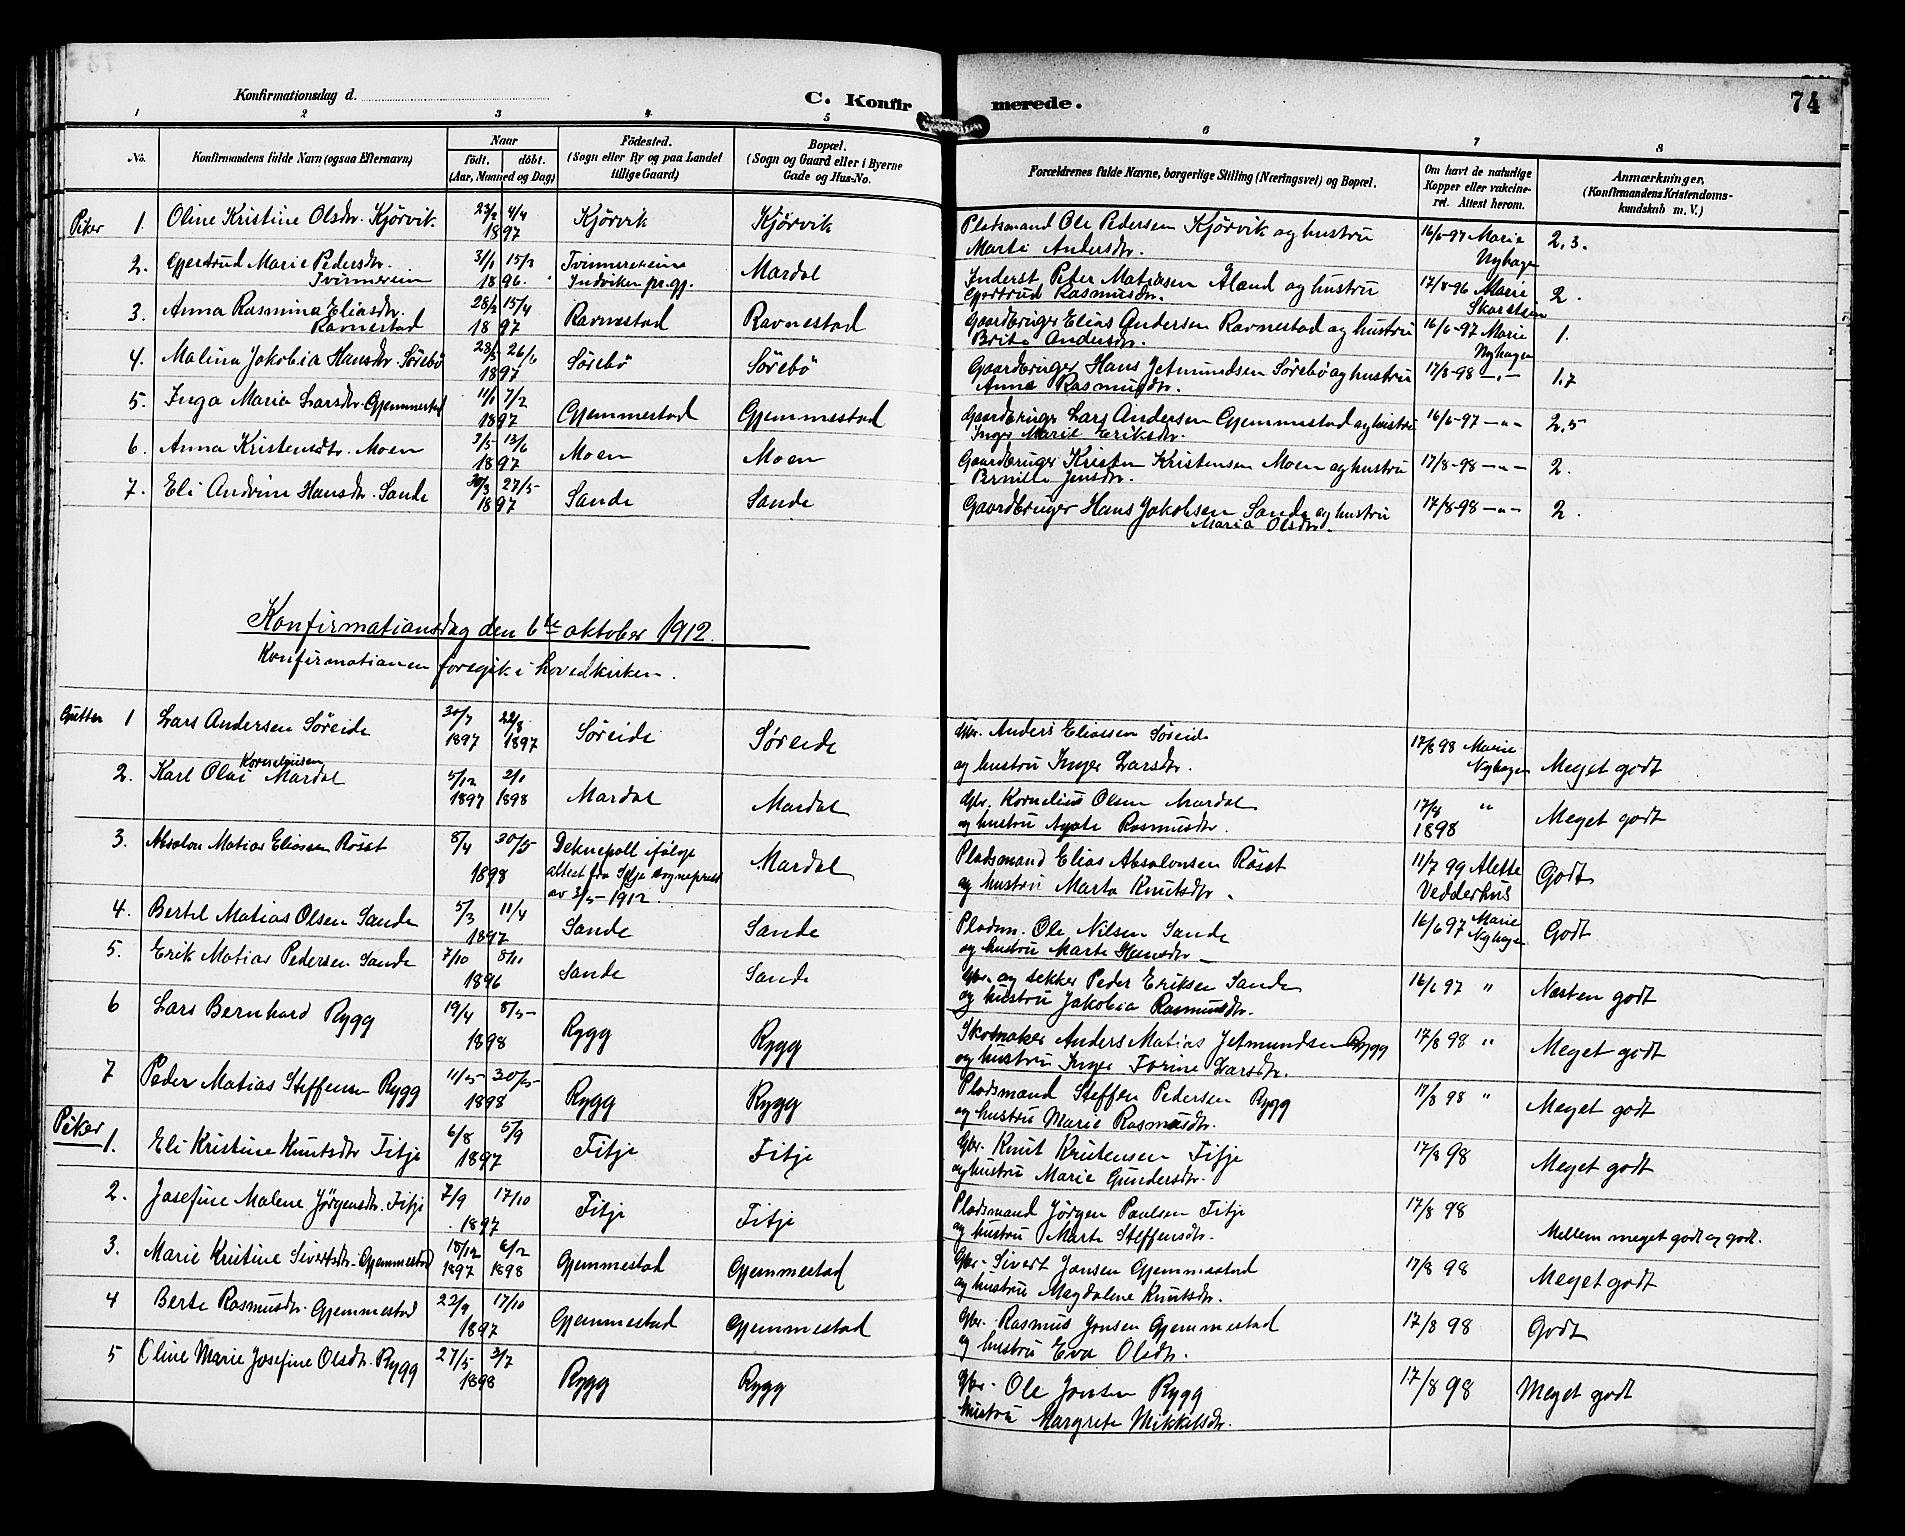 Konfirmationsdag d.
C. Konfirmerede.
74
1 2 3 4 5 6 7 8
No. Konfirmandens fulde Navn (ogsaa Efternavn) Naar født. döbt. (Aar, Maaned og Dag) Födested. (Sogn eller By og paa Landet tillige Gaard) Bopæl. (Sogn og Gaard eller i Byerne Gade og Hus-No. Forældrenes fulde Navne, borgerlige Stilling (Næringsvei) og Bopæl. Om havt de naturlige Kopper eller vakcineret. Attest herom. Anmærkninger, (Konfirmandens Kristendomskundskab m. V.)
Piker 1. Oline Kristine Olsdtr. Kjørvik 23/2 4/4 1897 Kjørvik Kjørvik Pladsmand Ole Pedersen Kjørvik og hustru Marte Andersdtr. 16/6-97 Marie Nyhagen 2,3.
2. Gjertrud Marie Pedersdtr. Tvinnereim 31/1 15/3 1896. Tvinnereim Indviken pr.gj. Mardal Inderst Peter Matiasen Åland og hustru Gjertrud Rasmusdtr. 17/8-96 Marie 2.
3. Anna Rasmina Eliasdtr. Ravnestad 28/2 15/4 1897 Ravnestad Ravnestad Gaardbruger Elias Andersen Ravnestad og hustru Brite Andersdtr. 16/6-97 Marie Nyhagen 1.
4. Malina Jakobia Hansdtr. Sørebø 28/5 26/6 1897 Sørebø Sørebø Gaardbruger Hans Jetmundsen Sørebø og hustru Anna Rasmusdtr. 17/8-98 -"- 1,7
5. Inga Maria Larsdtr. Gjemmestad 11/1 7/2 1897 Gjemmestad Gjemmestad Gaardbruger Lars Andersen Gjemmestad og hustru Inger Marie Eriksdtr. 16/6-97 -"- 2,5
6. Anna Kristensdtr. Moen 9/5 13/6 1897 Moen Moen Gaardbruger Kristen Kristensen Moen og hustru Pernille Jensdtr. 17/8-98 -"- 2.
7. Eli Andrine Hansdtr. Sande 30/3 27/5 1897 Sande Sande Gaardbruger Hans Jakobsen Sande og hustru Maria Olsdtr. 17/8-98 -"- 2.
Konfirmationsdag den 6te oktober 1912.
Konfirmationen foregik i hovedkirken.
Gutter 1 Lars Andersen Søreide 30/7 1897 22/8 1897 Søreide Søreide Gbr. Anders Eliassen Søreide og hustru Inger Larsdtr. 17/8 98 Marie Nyhagen Meget godt
2. Karl Olai Korneliusen Mardal 5/12 1897 2/1 1898 Mardal Mardal Gbr. Kornelius Olsen Mardal og hustru Agate Rasmusdtr. 17/8 1898 " Meget godt
3. Absalon Matias Eliassen Røset 8/4 30/5 1898 Deknepoll ifølge attest fra Selje sogneprest av 3/5-1912. Mardal Pladsmand Elias Absalonsen Røset og hustru Marta Knutsdtr. 11/7 99 Alette Vedderhus Godt
4. Bertel Matias Olsen Sande 5/3 11/4 1897 Sande Sande Pladsm. Ole Nilsen Sande og hustru Marte Hansdtr. 16/6 97 Marie Nyhagen Godt
5. Erik Matias Pedersen Sande 7/10 8/11 1896 Sande Sande Gbr. og sekker Peder Eriksen Sande og hustru Jakobia Rasmusdtr. 16/6 97 " Næsten godt
6 Lars Bernhard Rygg 19/4 8/5 1898 Rygg Rygg Skomaker Anders Matias Jetmundsen Rygg og hustru Inger Torine Larsdtr. 17/8 98 " Meget godt
7 Peder Matias Steffensen Rygg 11/5 30/5 1898 Rygg Rygg Pladsmand Steffen Pedersen Rygg og hustru Marie Rasmusdtr. 17/8 98 " Meget godt
Piker 1. Eli Kristine Knutsdtr Fitje 6/8 5/9 1897 Fitje Fitje Gbr. Knut Kristensen Fitje og hustru Marie Gundersdtr. 17/8 98 Meget godt
2. Josefine Malene Jørgensdtr. Fitje 7/9 17/10 1897 Fitje Fitje Pladsmand Jørgen Paulsen Fitje og hustru Marte Steffensdtr. 17/8 98 Mellem meget godt og godt.
3. Marie Kristine Sivertsdtr. Gjemmestad 18/12 1897 6/2 1898 Gjemmestad Gjemmestad Gbr. Sivert Jonsen Gjemmestad og hustru Magdalene Knutsdtr. 17/8 98 Meget godt
4 Berte Rasmusdtr. Gjemmestad 22/9 17/10 1897 Gjemmestad Gjemmestad Gbr. Rasmus Jonsen Gjemmestad og hustru Eva Olsdtr. 17/8 98 Godt
5 Oline Marie Josefine Olsdtr. Rygg 27/5 3/7 1898 Rygg Rygg Gbr. Ole Jonsen Rygg hustru Margrete Mikkelsdtr. 17/8 98 Meget godt